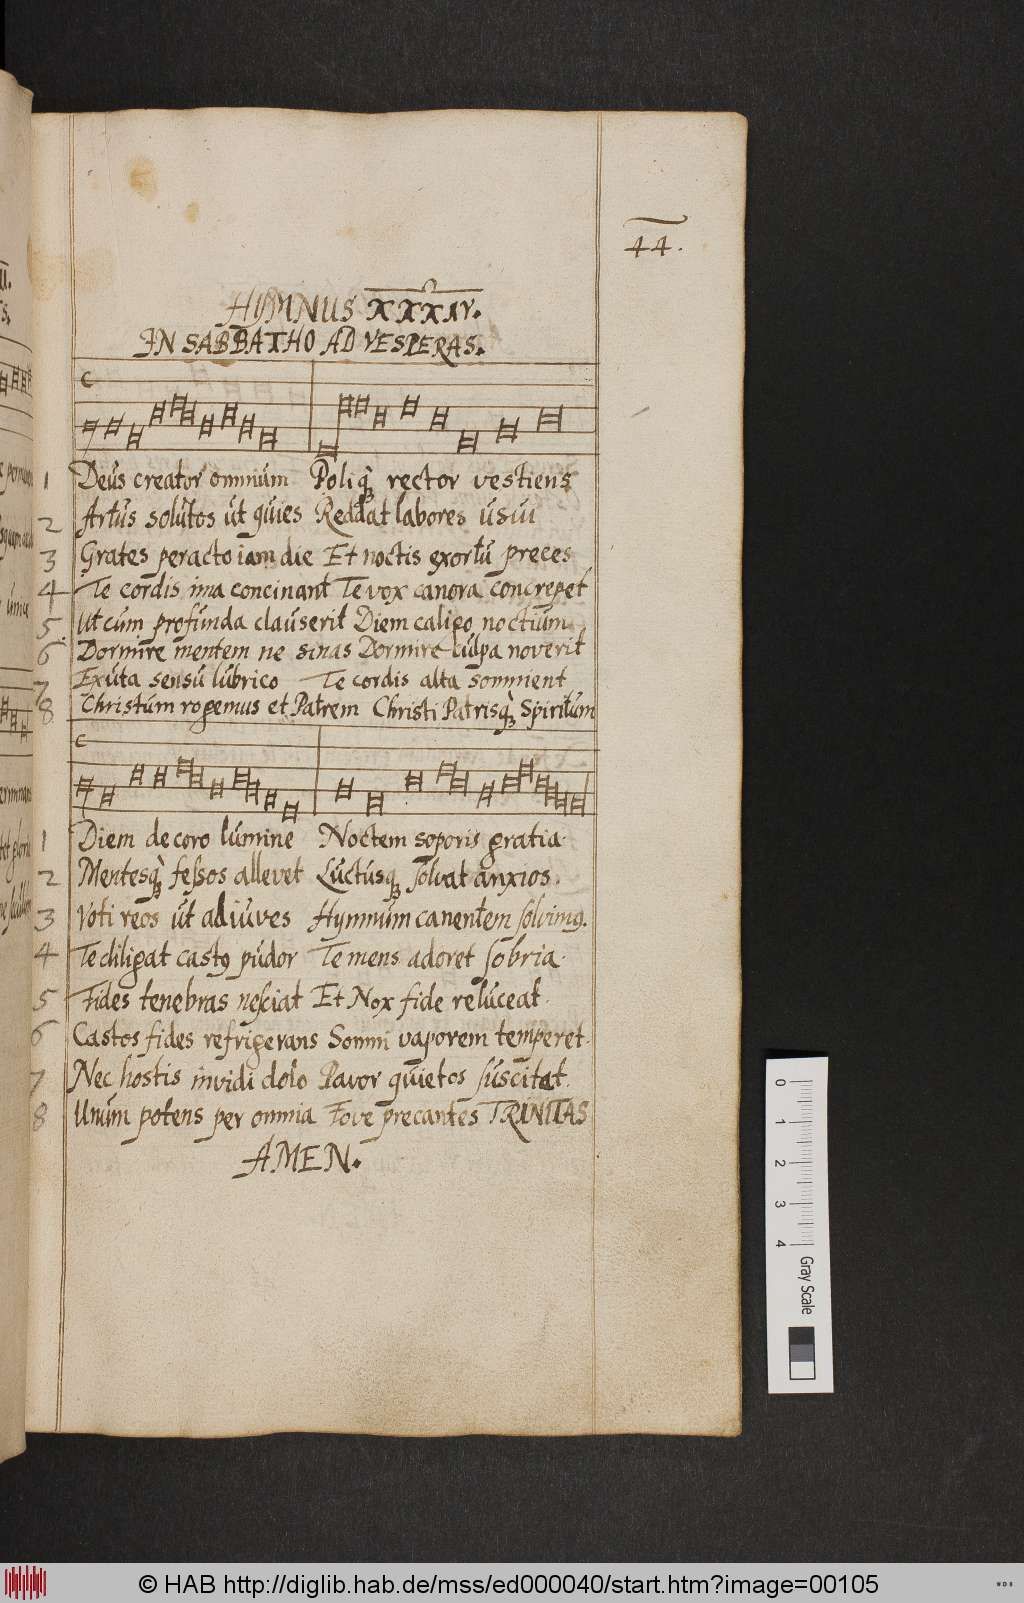 44.
HIMNUS XXXIV.
IN SABBATHO AD VESPERAS.
1 Deus creator omnium Poliq₃ rector vestiens
2 Artus solutos ut quies Reddat labores usui
3 Grates peracto iam die Et noctis exortu preces
4 Te cordis ima concinant Te vox canora concrepet
5 Ut cum profunda clauserit Diem caligo noctium
6 Dormire mentem ne sinas Dormire culpa noverit
7 Exuta sensu lubrico Te cordis alta somnient
8 Christum rogemus et Patrem Christi Patrisq₃ Spiritum
1 Diem decoro lumine Noctem soporis gratia.
2 Mentesq₃ feſsos allevet Luctusq₃ ſolvat anxios.
3 Voti reos ut adiuves Hymnum canentem ſolvimꝰ.
4 Te diligat castꝰ pudor Te mens adoret ſobria.
5 Fides tenebras neſciat Et Nox fide reluceat.
6 Castos fides refrigerans Somni vaporem temperet.
7 Nec hostis invidi dolo Pavor quietos ſuscitat.
8 Unum potens per omnia Fove precantes TRINITAS
AMEN.
0 1 2 3 4 Gray Scale
© HAB http://diglib.hab.de/mss/ed000040/start.htm?image=00105